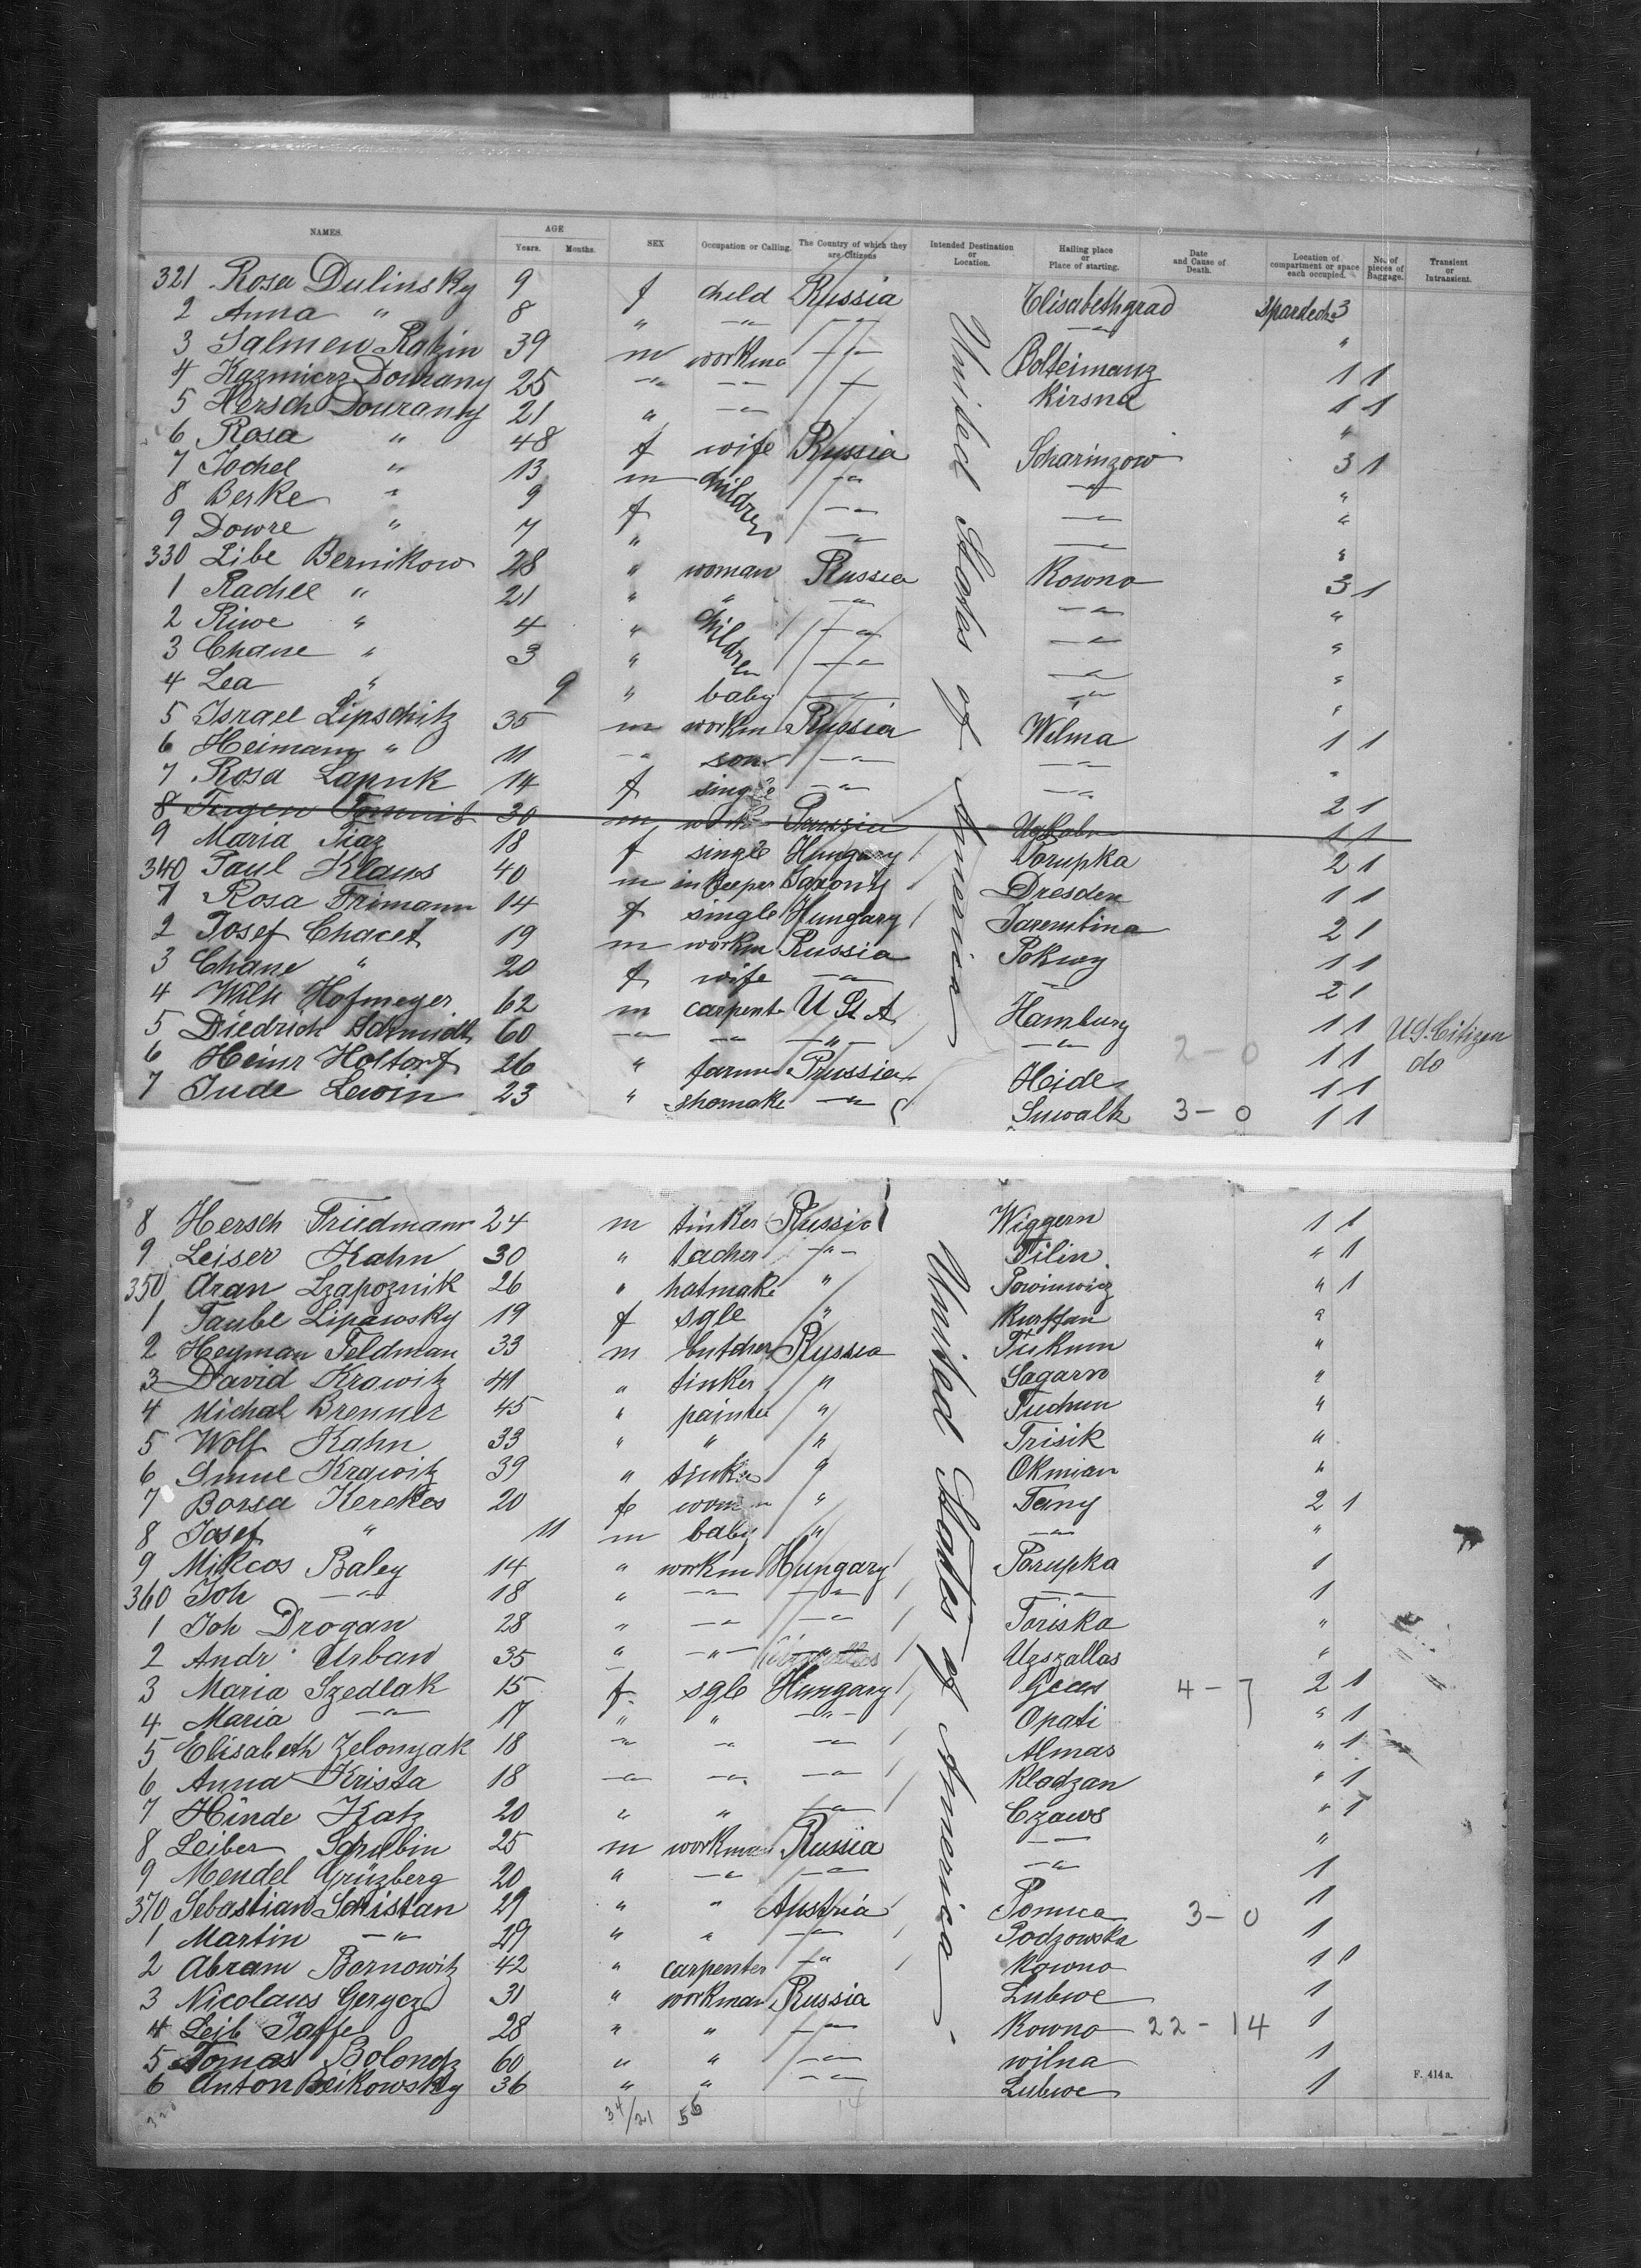 NAMES. AGE Years. Months. SEX Occupation or Calling. The Country of which they are Citizens Intended Destination or Location. Hailing place or Place of starting. Date and Cause of Death. Location of compartment or space each occupied. No. of pieces of Baggage. Transient or Intransient.
321 Rosa Dulinsky 9 f child Russia Elisabethgrad Spardeck 3
2 Anna " 8 " —"— —"— —"— "
3 Salmen Ratzin 39 m workma —"— 1 1
4 Kazmierz 25 —"— —"— —"— Kirsna 1 1
5 Hersch 21 " —"— "
6 Rosa " 48 f wife Russia Scharinzow 3 1
7 Jochel " 13 m children —"— —"— "
8 Berke " 9 f —"— —"— "
9 Dowre " 7 " —"— —"— "
330 Libe Bernikow 28 " woman Russia Kowno 3 1
1 Rachel " 21 " " —"— —"— "
2 Riwe " 4 " children —"— —"— "
3 Chane " 3 " —"— —"— "
4 Lea " 9 " baby —"— —"— "
5 Israel Lipschitz 35 m workm Russia Wilma 1 1
6 Heimann " 11 —"— son —"— —"— "
7 Rosa Lapuk 14 f single —"— —"— 2 1
8 30 m work 1 1
9 Maria Tiaz 18 f single Hungary Porupka 2 1
340 Paul Klaws 40 m inkeeper Saxony Dresden 1 1
1 Rosa Frimann 14 f single Hungary 2 1
2 Josef Chacet 19 m workm Russia Pokroy 1 1
3 Chane " 20 f wife —"— —"— 2 1
4 Wilh Hofmeyer 62 m carpent U St A Hamburg 1 1 U.S. Citizen
5 Diedrich Schmidt 60 —"— —"— —"— —"— 2 - 0 1 1 do
6 Heinr Holtorf 26 " farme Prussia Heide 1 1
7 Jude Lewin 23 " shomake —"— Suwalk 3 - 0 1 1
United States of America
8 Hersch Friedmann 24 m tinker Russia Wiggern 1 1
9 Leiser Kahn 30 " tacher —"— Pilin " 1
350 Aran Szapoznik 26 " hatmake " " 1
1 Taube Lipawsky 19 f sgle " "
2 Heyman Feldman 33 m butcher Russia Tukum "
3 David Krawitz 41 " tinker " Sagarn "
4 Michal Brenner 45 " painter " Tuchum "
5 Wolf Kahn 33 " " " Trisik "
6 Smul Krawitz 39 " tinke " Okmian "
7 Borsa Kerekes 20 f woman " Tany 2 1
8 Josef " 11 m baby " —"— "
9 Mikcos Baley 14 " workm Hungary Porupka 1
360 Joh —"— 18 " —"— —"— —"— 1
1 Joh Drogan 28 " —"— —"— Toriska "
2 Andr Urban 35 " —"— Uzszallas "
3 Maria Szedlak 15 f sgle Hungary 4 - 7 2 1
4 Maria —"— 17 " " —"— Opati " 1
5 Elisabeth Zelonyak 18 —"— —"— —"— Almas " 1
6 Anna Krista 18 —"— —"— —"— Kladzan " 1
7 Hinde Katz 20 " " —"— Czaws " 1
8 Leiber Schubin 25 m workman Russia —"— "
9 Mendel Grüzberg 20 " —"— —"— —"— 1
370 Sebastian Schistan 29 " " Austria Pomuca 3 - 0 1
1 Martin —"— 29 " " —"— Podzowska 1
2 Abram Bornowitz 42 " carpenter —"— Kowno 1 1
3 Nicolaus Gerycz 31 " workman Russia Lubwe 1
4 Leib Jaffe 28 " " —"— Kowno 22 - 14 1
5 Tomas Bolondz 60 " " —"— wilna 1
6 Anton Beikowsky 36 " " —"— Lubwe 1
United States of America
F. 414 a.
34/21 56 14
320